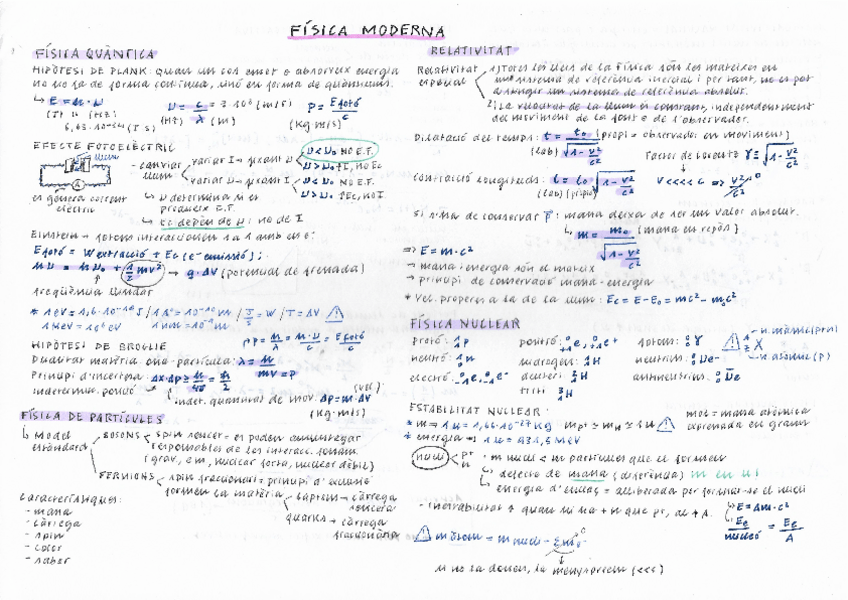 FÍSICA MODERNA
FÍSICA QUÀNTICA
HIPÒTESI DE PLANK: quan un cos emet o absorveix energia
no ho fa de forma contínua, sinó en forma de quàntums.
E = h · ν
(J) (Hz)
6,63·10⁻³⁴ (J s)
ν = c / λ = 3·10⁸ (m/s)
(Hz) (m)
p = Efotó / c
(Kg m/s)
EFECTE FOTOELÈCTRIC
es genera corrent
elèctric
- canviar
llum
variar I - fixant ν
variar ν - fixant I
ν < ν₀ NO E.T.
ν > ν₀ ↑I, no Ec
ν < ν₀ NO E.T.
ν > ν₀ ↑Ec, no I
ν determina si es
produeix E.T.
Ec depèn de ν: no de I
Einstein → fotons interaccionen 1 a 1 amb els e⁻:
Efotó = Wextracció + Ec (e⁻ emissió);
hν = hν₀ + ½mv² → q·ΔV (potencial de frenada)
freqüència llindar
* 1eV = 1,6·10⁻¹⁹J / 1Å = 10⁻¹⁰m / J/s = W / J = ΔV
1MeV = 10⁶eV 1nm = 10⁻⁹m
HIPÒTESI DE BROGLIE
p = h/λ = h·ν/c = Efotó/c
Dualitat matèria ona-partícula: λ = h / mv = p
Principi d'incertesa Δx·Δp ≥ h/4π = ħ/2
indeterminac. posició
indet. quantitat de mov. Δp = m·ΔV
(Kg·m/s)
FÍSICA DE PARTÍCULES
Model
estàndard
BOSONS
spin sencer = es poden amuntegar
responsables de les interacc. fonam.
(grav, em, nuclear forta, nuclear dèbil)
FERMIONS
spin fraccionari = principi d'exclusió
formen la matèria
leptons → càrrega
sencera
quarks → càrrega
fraccionària
Característiques:
- massa
- càrrega
- spin
- color
- sabor
RELATIVITAT
Relativitat
especial
1) Totes les lleis de la física són les mateixes en
un sistema de referència inercial i per tant, no es pot
un sistema de referència absolut.
2) La velocitat de la llum és constant, independentment
del moviment de la font o de l'observador.
Dilatació del temps: t = t₀ / √1-v²/c²
(propi = observador en moviment)
(lab)
Factor de Lorentz γ = 1 / √1-v²/c²
Contracció longituds: l = l₀ √1-v²/c²
(lab) (propi)
v <<<< c ⇒ v²/c² 0
Si s'ha de conservar p⃗: massa deixa de ser un valor absolut.
m = m₀ / √1-v²/c² (massa en repòs)
⇒ E = m·c²
→ massa i energia són el mateix
→ principi de conservació massa-energia
* Vel. propera a la de la llum: Ec = E - E₀ = mc² - m₀c²
FÍSICA NUCLEAR
protó: ¹₁p
neutró: ¹₀n
electró: ⁰₋₁e, ⁰₋₁e⁻
positró: ⁰₊₁e, ⁰₊₁e⁺
hidrogen: ¹₁H
deuteri: ²₁H
triti: ³₁H
fotons: ⁰₀γ
neutrins: ⁰₀νe
antineutrins: ⁰₀ν̄e
A Z X
n. màssic (p+n)
n. atòmic (p)
ESTABILITAT NUCLEAR
mol = massa atòmica
expressada en grams
* m → 1u = 1,66·10⁻²⁷Kg mp⁺ ≃ mn ≃ 1u
* energia → 1u = 931,5 MeV
nucli
p⁺
n
- m nucli < m partícules que el formen
defecte de massa (diferència) m en u!
energia d'enllaç = alliberada per formar-se el nucli
- inestabilitat ↑ quan hi ha + n que p⁺, al ↑ A.
E = Δm·c²
Ee / nucleó = Ee / A
m àtom = m nucli - Σm₀⁻ 0
si no la donen, la menyspreem (<<<)